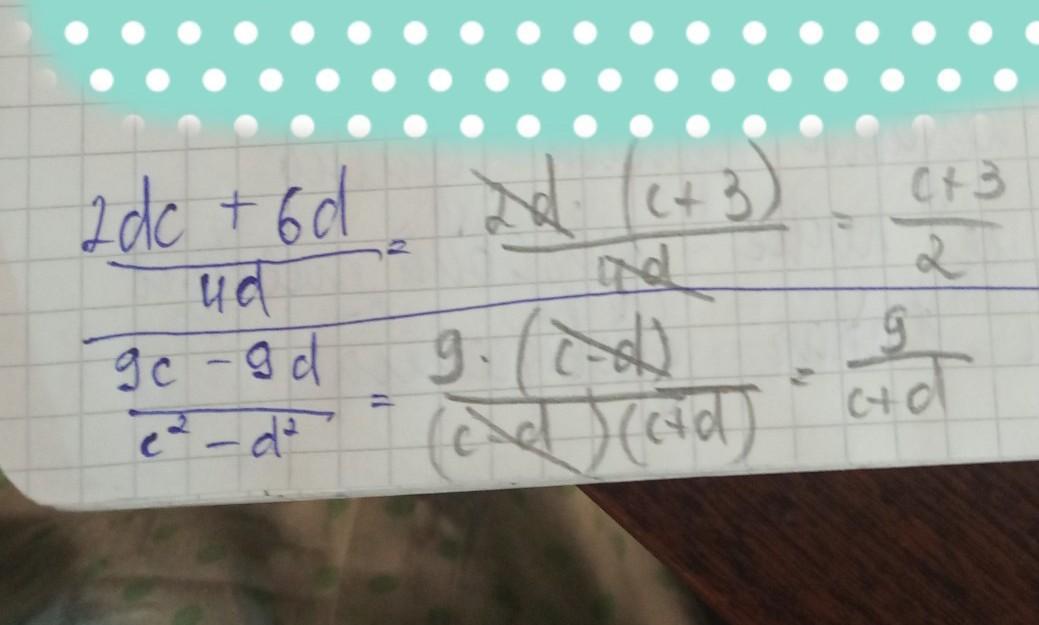 2dc + 6d / 4d = 2d · (c + 3) / 4d = c + 3 / 2
9c - 9d / c² - d² = 9 · (c - d) / (c - d)(c + d) = 9 / c + d